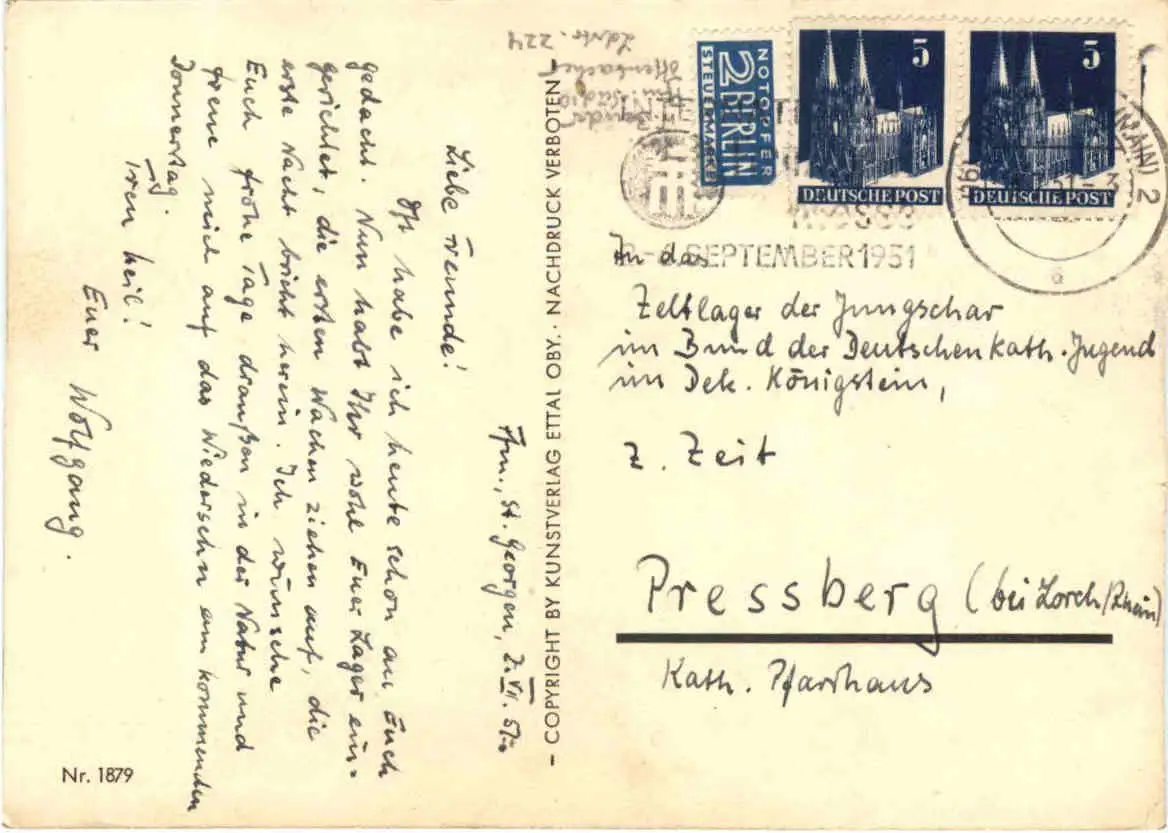 Ffm., St. Georgen, 2. VII. 51.
Liebe Freunde!
Oft habe ich heute schon an Euch
gedacht. Nun habt Ihr wohl Euer Lager ein-
gerichtet, die ersten Wachen ziehen auf, die
erste Nacht bricht herein. Ich wünsche
Euch frohe Tage draußen in der Natur und
freue mich auf das Wiedersehn am kommenden
Donnerstag.
Treu heil!
Euer Wolfgang.
Nr. 1879
- COPYRIGHT BY KUNSTVERLAG ETTAL OBY. · NACHDRUCK VERBOTEN -
Offenbacher
Ldstr. 224
NOTOPFER
2 BERLIN
STEUERMARKE
5
DEUTSCHE POST
5
DEUTSCHE POST
(MAIN) 2
SEPTEMBER 1951
An das
Zeltlager der Jungschar
im Bund der Deutschen Kath. Jugend
im Dek. Königstein,
z. Zeit
Pressberg (bei Lorch/Rhein)
Kath. Pfarrhaus